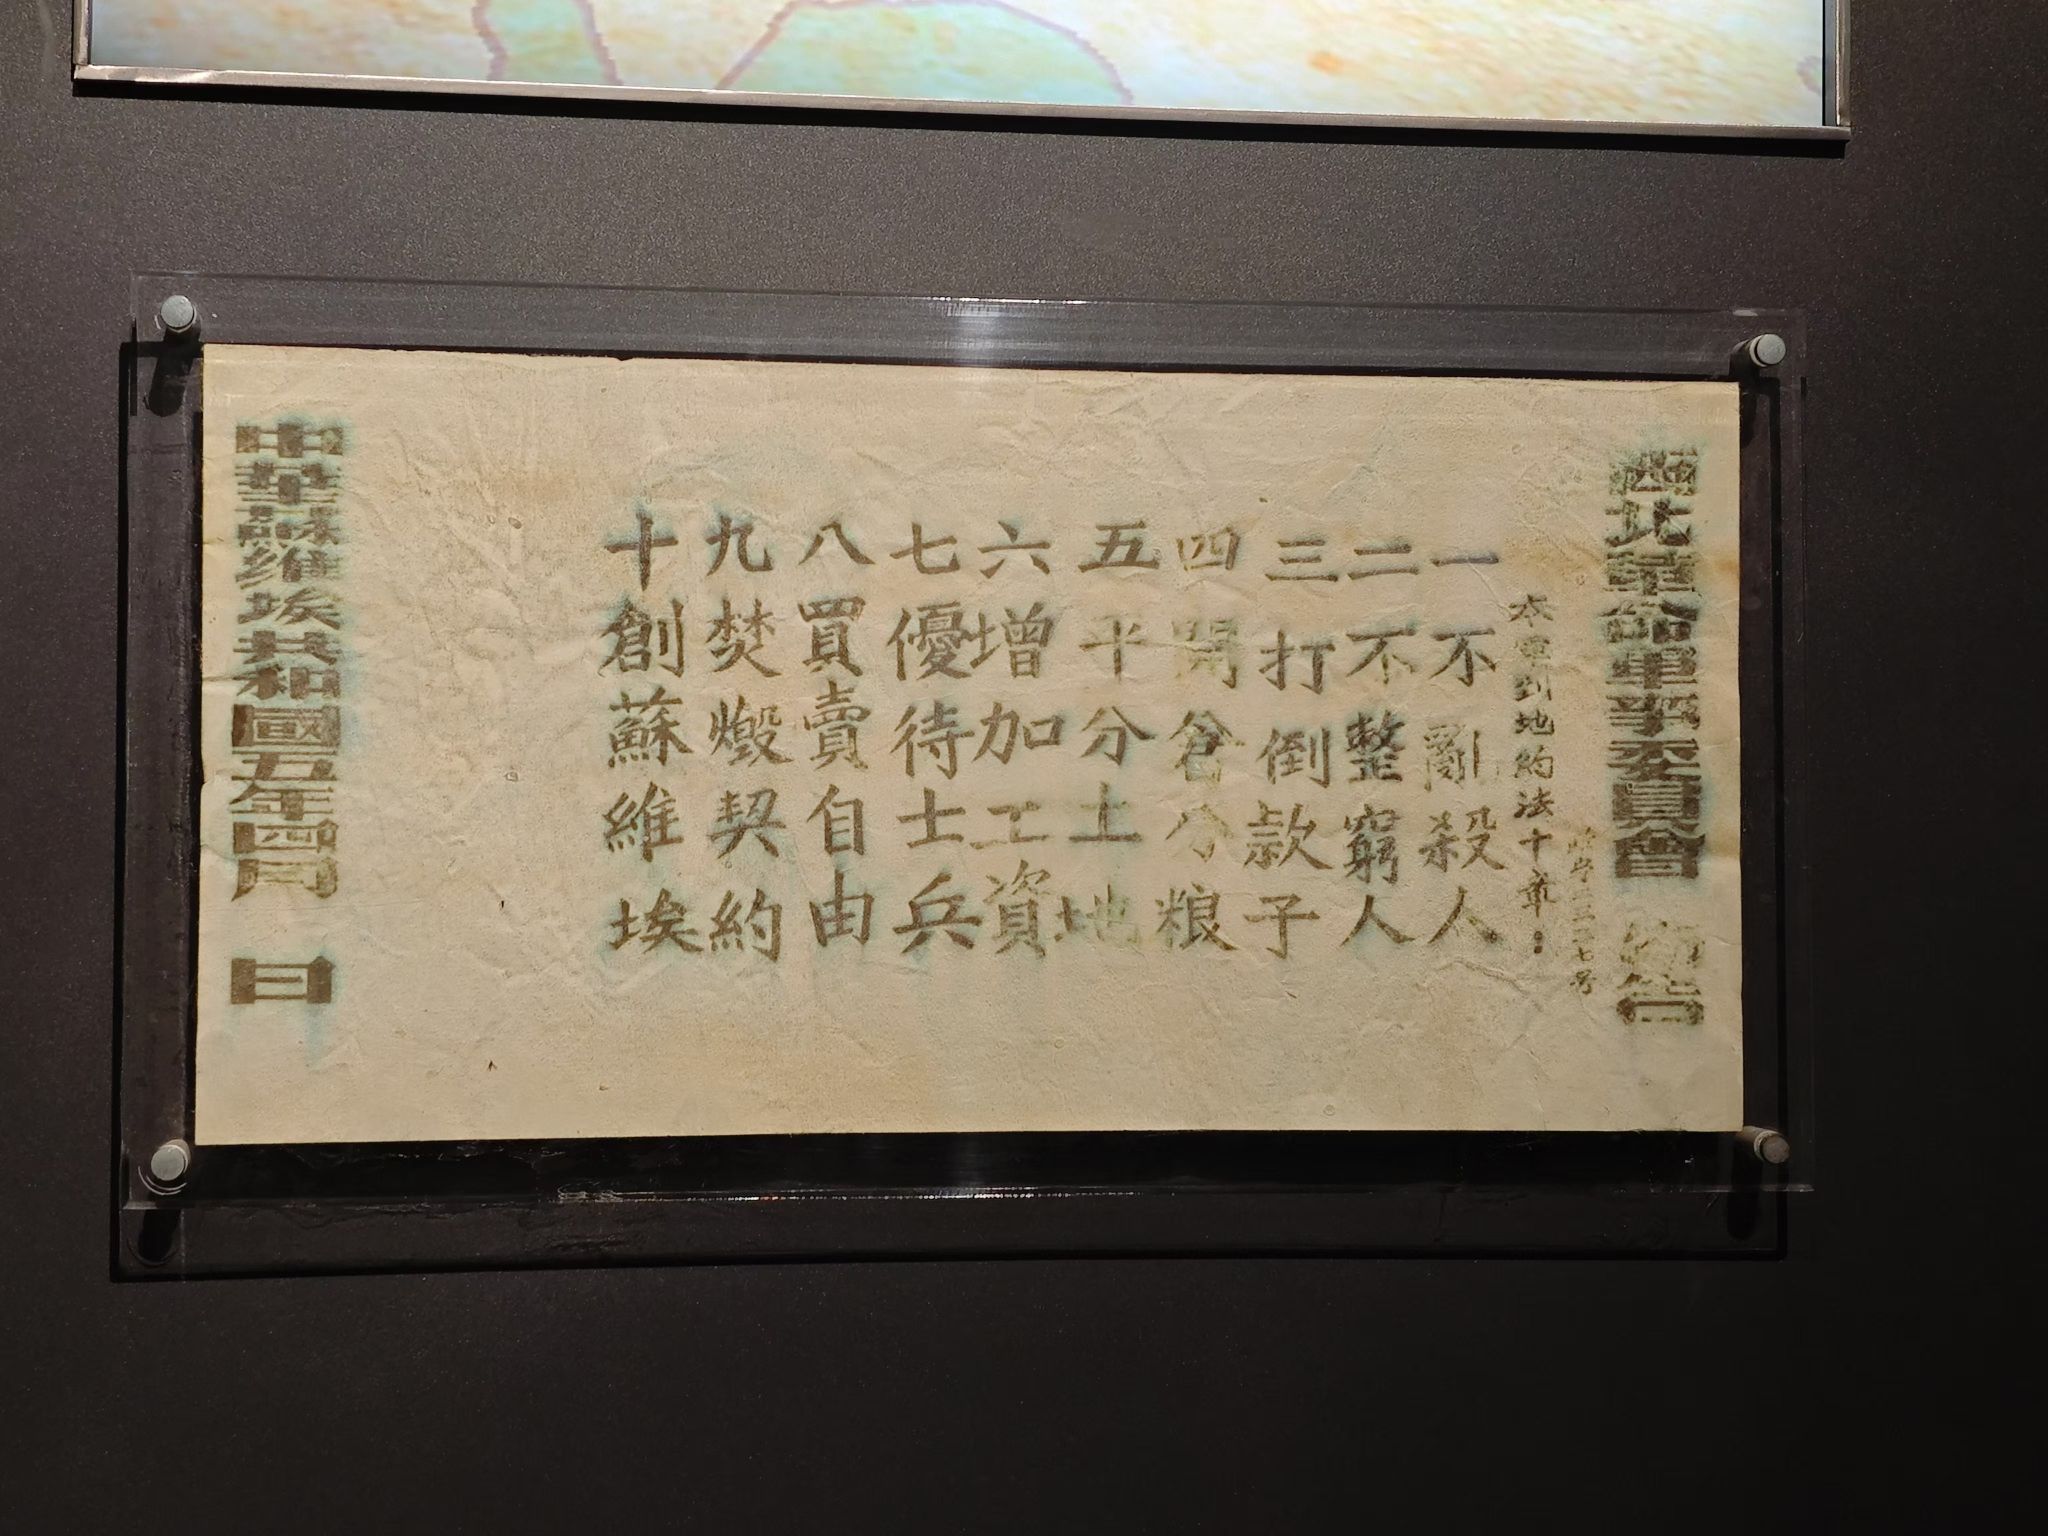 西北革命軍事委員會 佈告
本軍到地約法十章：
一不亂殺人
二不整窮人
三打倒款子
四開倉分粮
五平分土地
六增加工資
七優待士兵
八買賣自由
九焚燬契約
十創蘇維埃
中華蘇維埃共和國五年四月 日